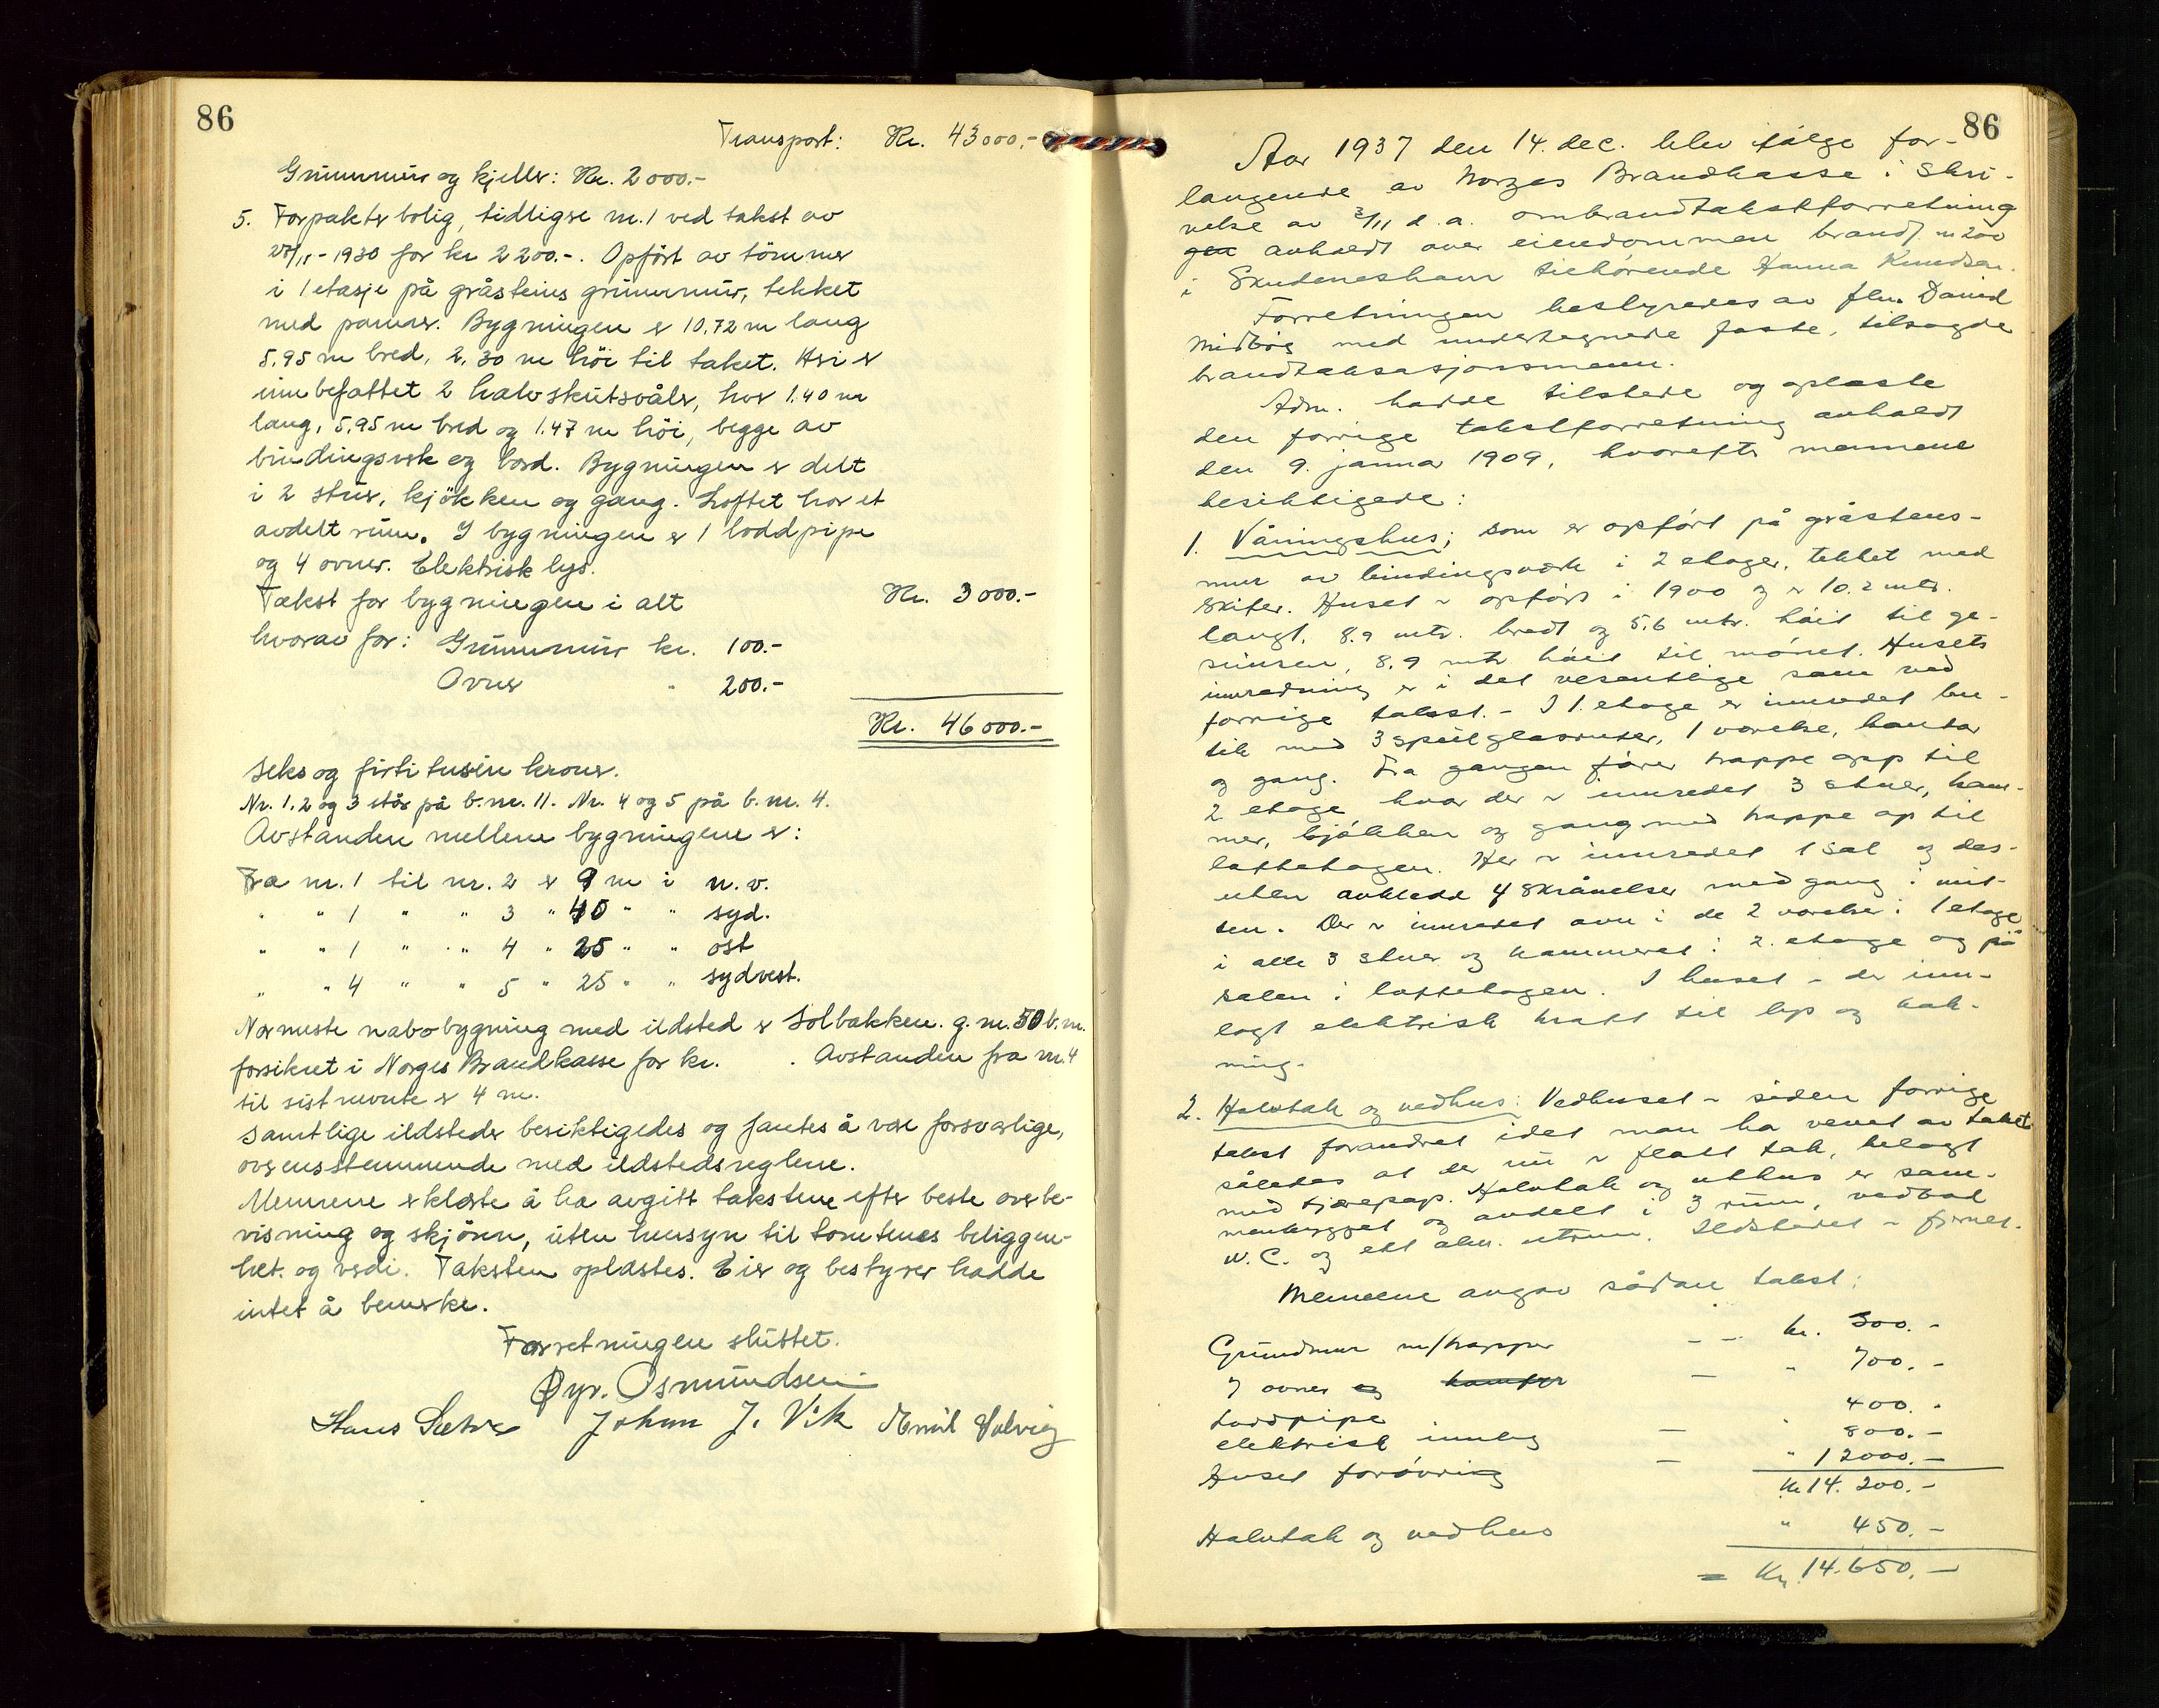 86
Transport: Kr. 43000.-
Grunnmur og kjeller: Kr. 2000.-
5. Forpakter bolig, tidligere nr. 1 ved takst av
1930 for kr 2200.-. Opført av tömmer
i 1 etasje på gråsteins grunnmur, tekket
med panner. Bygningen er 10,72 m lang
5,95 m bred, 2,30 m höi til taket. Heri er
innbefattet 2 halvskutsvåler, hver 1.40 m
lang, 5,95 m bred og 1.47 m höi, begge av
bindingsverk og bord. Bygningen er delt
i 2 stuer, kjökken og gang. Loftet har et
avdelt rum. I bygningen er 1 loddpipe
og 4 ovner. Elektrisk lys.
Takst for bygningen i alt Kr. 3000.-
hvorav for: Grunnmur kr. 100.-
Ovner " 200.-
Kr. 46000.-
Seks og firti tusen kroner.
Nr. 1, 2 og 3 står på b.nr. 11. Nr. 4 og 5 på b.nr. 4.
Avstanden mellem bygningene er:
Fra nr. 1 til nr. 2 er 9 m i n.v.
" " 1 " " 3 " 40 " " syd.
" " 1 " " 4 " 25 " " ost
" " 4 " " 5 " 25 " " sydvest.
Nærmeste nabobygning med ildsted er Solbakken. g.nr. 50 b.nr.
forsikret i Norges Brandkasse for kr. . Avstanden fra nr. 4
til sist nevnte er 4 m.
Samtlige ildsteder besiktigedes og fantes å være forsvarlige,
overensstemmende med ildstedsreglene.
Mennene erklærte å ha avgitt takstene efter beste overbe-
visning og skjönn, uten hensyn til tomtenes beliggen-
het og verdi. Taksten oplæstes. Eier og bestyrer hadde
intet å bemerke.
Forretningen sluttet.
Øyv. Osmundsen
Hans Sætre Johan J. Vik Emil Valvig
86
Aar 1937 den 14. dec. blev ifølge for-
langende av Norges Brandkasse i skri-
velse av 2/11 d.a. ombrandtakstforretning
avholdt over eiendommen brandt. nr 200
i Skudeneshavn tilhørende Hanna Knudsen.
Forretningen bestyredes av flm. David
Midbög med undertegnede faste, tilsagde
brandtaksasjonsmenn.
Adm. hadde tilstede og oplæste
den forrige takstforretning avholdt
den 9. janua 1909, hvorefter mennene
besiktigede:
1. Våningshus; som er opført på gråstens-
mur av bindingsverk i 2 etager, tekket med
skifer. Huset er opført i 1900 og er 10.2 mtr.
langt, 8.9 mtr. bredt og 5.6 mtr. höit til ge-
simsen, 8.9 mtr höit til mønet. Husets
innredning er i det vesentlige som ved
forrige takst. - I 1. etage er innredet bu-
tik med 3 speilglassruter, 1 værelse, kontor
og gang. Fra gangen fører trappe opp til
2 etage hvor der er innredet 3 stuer, kam-
mer, kjökken og gang med trappe op til
loftetagen. Her er innredet 1 sal og des-
uten avkledd 4 skråvelser med gang i mit-
ten. Der er innredet ovn i de 2 værelser i 1 etage
i alle 3 stuer og kammeret i 2. etage og på
salen i loftetagen. I huset er der inn-
lagt elektrisk kraft til lys og kok-
ning.
2. Halvtak og vedhus: Vedhuset er siden forrige
takst forandret idet man ha vendt av taket
således at der nu er flatt tak, belagt
med tjærepap. Halvtak og uthus er sam-
menbygget og avdelt i 3 rum, vedbod
W.C. og ett alm. uterum. Ildstedet er fjernet.
Mennene avgav sådan takst:
Grundmur m/trapper - - kr. 300.-
7 ovner og - " 700.-
Loddpipe 400.-
elektrisk innlæg - " 800.-
Huset forøvrig - " 12000.-
Kr 14.200.-
Halvtak og vedhus " 450.-
= Kr. 14.650.-